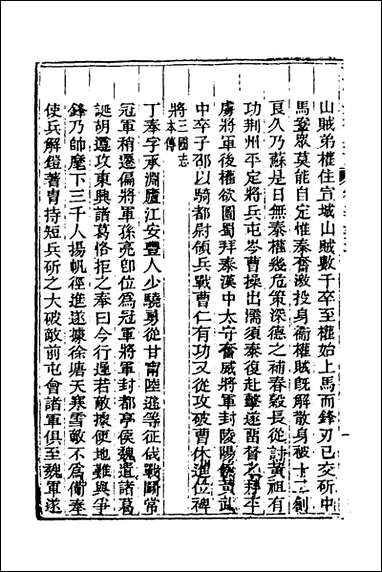 山賊弟權住宣城山賊數千卒至權始上馬而鋒刃已交斫中
馬鞍眾莫能自定惟泰奮激投身衞權賊旣解散身被十二創
良久乃蘇是日無泰權幾危策深德之補春穀長從討黃祖有
功荆州平定將兵屯岑曹操出濡須泰復赴擊遂畱督之拜平
虜將軍後權欲圖蜀拜泰漢中太守奮威將軍封陵陽侯黃武
中卒子邵以騎都尉領兵戰曹仁有功又從攻破曹休進位裨
將三國志本傳
丁奉字承淵廬江安豐人少驍勇從甘甯陸遜等征伐戰鬭常
冠軍稍遷偏將軍孫亮卽位爲冠軍將軍封都亭侯魏遣諸葛
誕胡遵攻東興諸葛恪拒之奉曰今行遲若敵據便地難與爭
鋒乃帥麾下三千人揚帆徑進遂據徐塘天寒雪敵不爲備奉
使兵解鎧著冑持短兵斫之大破敵前屯會諸軍俱至魏軍遂